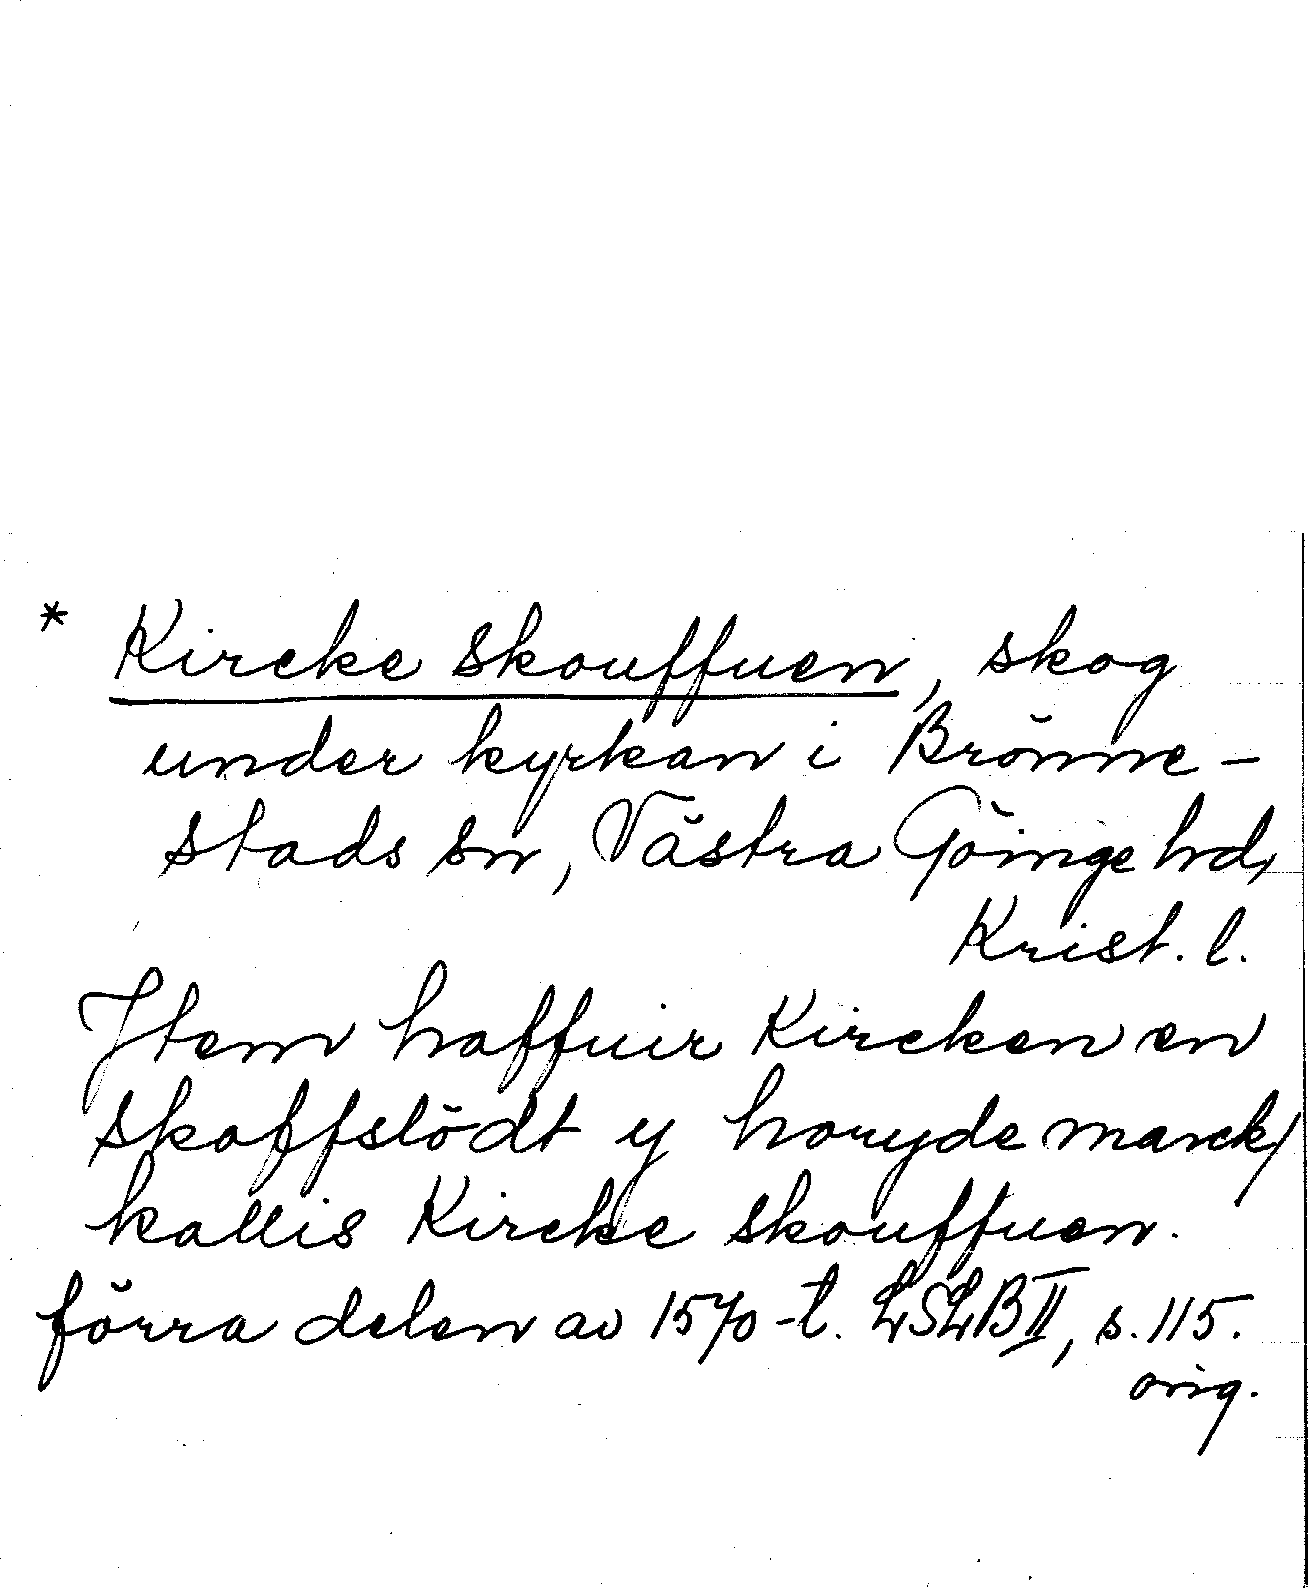 * Kircke skouffuen, skog
under kyrkan i Brönne-
stads sn, Västra Göinge hd,
Krist. l.
Jtem haffuir Kircken en
skoffslödt y horyde marck/
kallis Kircke skouffuen.
förra delen av 1570-t. LSLB II, s. 115.
orig.